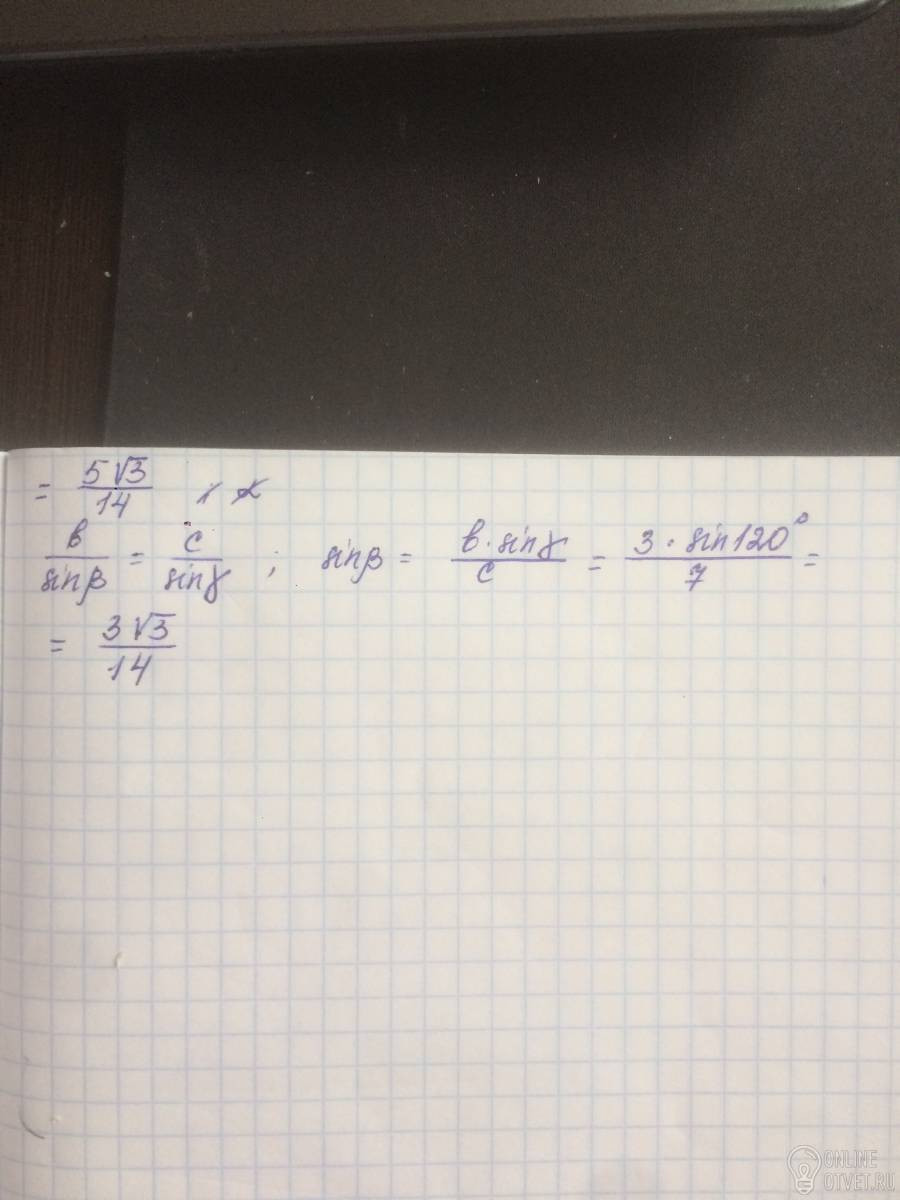 = 5√3/14
в/sinβ = c/sinγ ; sinβ = в·sinγ/c = 3·sin120°/7 =
= 3√3/14
ONLINE
OTVET.RU